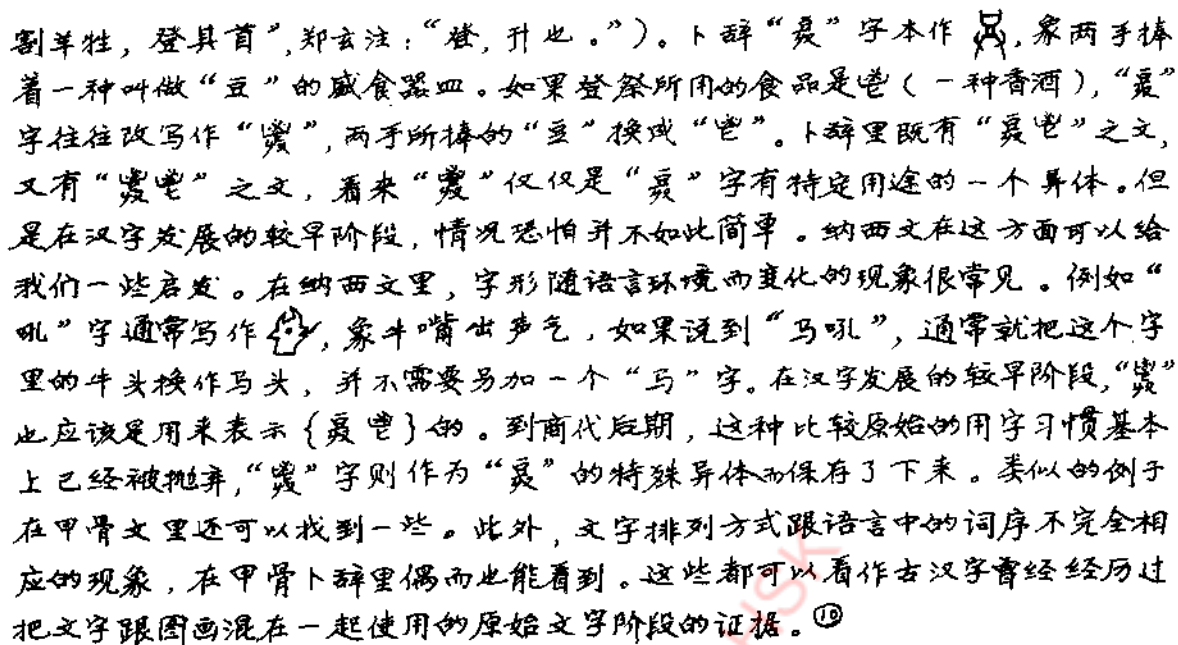 割羊牲，登其首”，郑玄注：“登，升也。”）。卜辞“”字本作，象两手捧
着一种叫做“豆”的盛食器皿。如果登祭所用的食品是鬯（一种香酒），“”
字往往改写作“”，两手所捧的“豆”换成“鬯”。卜辞里既有“鬯”之文，
又有“鬯”之文，看来“”仅仅是“”字有特定用途的一个异体。但
是在汉字发展的较早阶段，情况恐怕并不如此简单。纳西文在这方面可以给
我们一些启发。在纳西文里，字形随语言环境而变化的现象很常见。例如“
吼”字通常写作，象牛嘴出声气，如果说到“马吼”，通常就把这个字
里的牛头换作马头，并不需要另加一个“马”字。在汉字发展的较早阶段，“”
也应该是用来表示{鬯}的。到商代后期，这种比较原始的用字习惯基本
上已经被抛弃，“”字则作为“”的特殊异体而保存了下来。类似的例子
在甲骨文里还可以找到一些。此外，文字排列方式跟语言中的词序不完全相
应的现象，在甲骨卜辞里偶而也能看到。这些都可以看作古汉字曾经经历过
把文字跟图画混在一起使用的原始文字阶段的证据。⑩
HSK